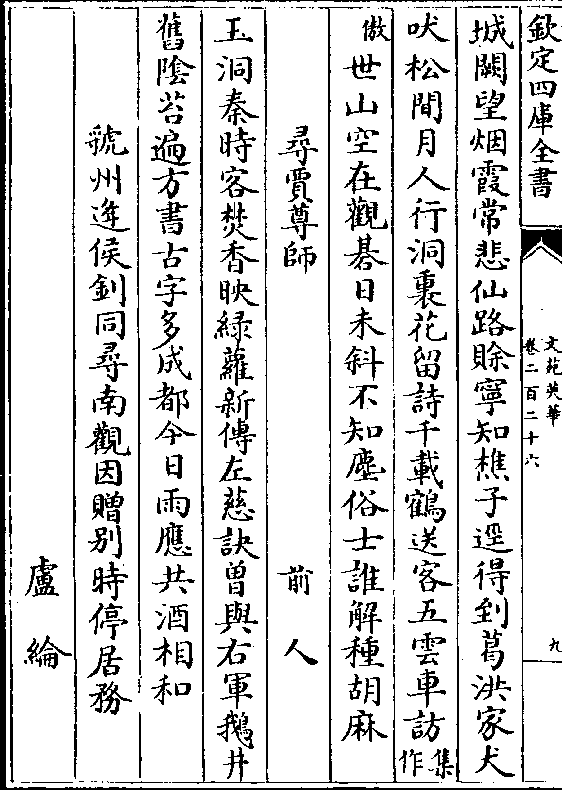 欽定四庫全書
文苑英華
卷二百二十六
九
城闕望烟霞常悲仙路賖寧知樵子逕得到葛洪家犬
吠松間月人行洞裏花留詩千載鶴送客五雲車訪集作
傲世山空在觀棊日未斜不知塵俗士誰解種胡麻
尋賈尊師 前人
玉洞秦時客焚香映緑蘿新傳左慈訣曽與右軍鵝井
舊陰苔遍方書古字多成都今日雨應共酒相和
虢州逄侯釗同尋南觀因贈别時停居務
盧綸